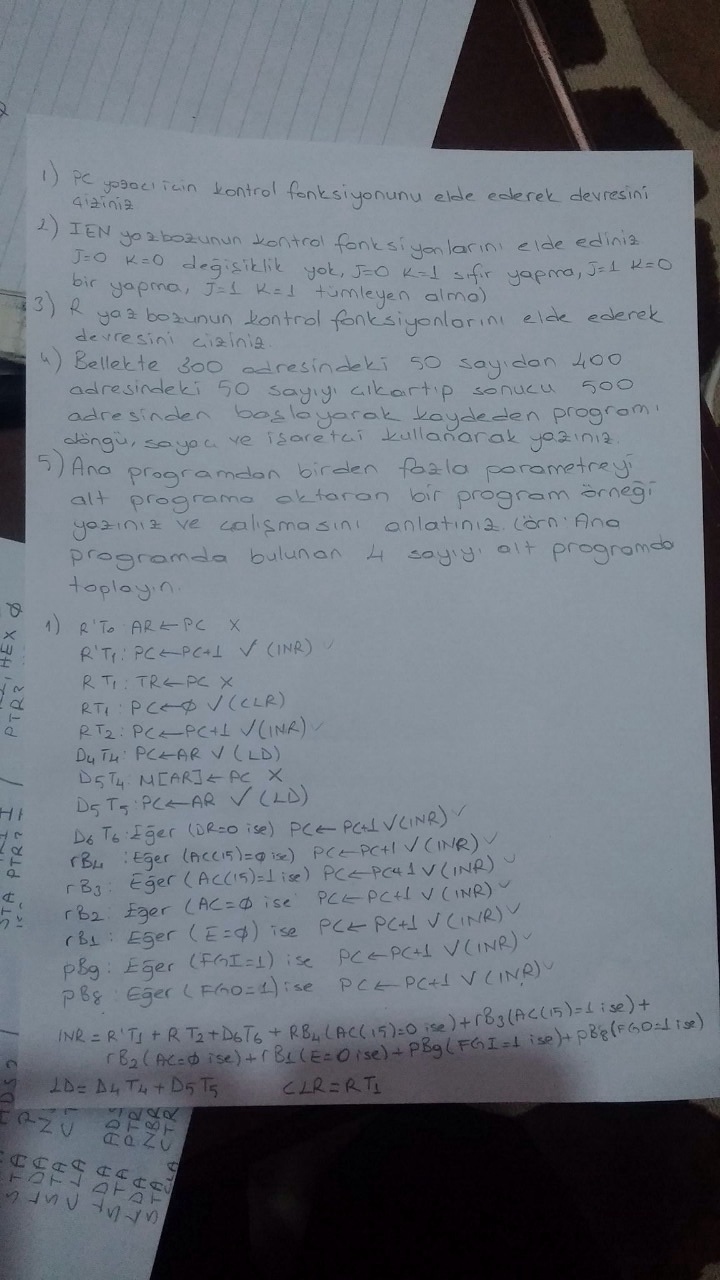 1) PC yazacı için kontrol fonksiyonunu elde ederek devresini
çiziniz
2) IEN yazbozunun kontrol fonksiyonlarını elde ediniz
J=0 K=0 değişiklik yok, J=0 K=1 sıfır yapma, J=1 K=0
bir yapma, J=1 K=1 tümleyen alma)
3) R yaz bozunun kontrol fonksiyonlarını elde ederek
devresini çiziniz.
4) Bellekte 300 adresindeki 50 sayıdan 400
adresindeki 50 sayıyı çıkartıp sonucu 500
adresinden başlayarak kaydeden programı
döngü, sayaç ve işaretçi kullanarak yazınız.
5) Ana programdan birden fazla parametreyi
alt programa aktaran bir program örneği
yazınız ve çalışmasını anlatınız. (örn: Ana
programda bulunan 4 sayıyı alt programda
toplayın.
1) R'T0: AR←PC X
R'T1: PC←PC+1 √ (INR) ✓
RT1: TR←PC X
RT1: PC←Ø √(CLR)
RT2: PC←PC+1 √(INR) ✓
D4T4: PC←AR √ (LD)
D5T4: M[AR]←PC X
D5T5: PC←AR √ (LD)
D6T6: Eğer (DR=0 ise) PC←PC+1 √(INR) ✓
rB4 : Eğer (AC(15)=Ø ise) PC←PC+1 √ (INR) ✓
rB3 : Eğer (AC(15)=1 ise) PC←PC+1 √ (INR) ✓
rB2: Eğer (AC=Ø ise PC←PC+1 √ (INR) ✓
rB1 : Eğer (E=Ø) ise PC←PC+1 √ (INR) ✓
pB9: Eğer (FGI=1) ise PC←PC+1 √(INR) ✓
pB8: Eğer (FGO=1) ise PC←PC+1 √ (INR) ✓
INR = R'T1 + RT2 + D6T6 + RB4(AC(15)=0 ise)+rB3(AC(15)=1 ise)+
rB2(AC=Ø ise)+rB1(E=0 ise)+pB9(FGI=1 ise)+pB8(FGO=1 ise)
LD= D4T4+D5T5 CLR=RT1